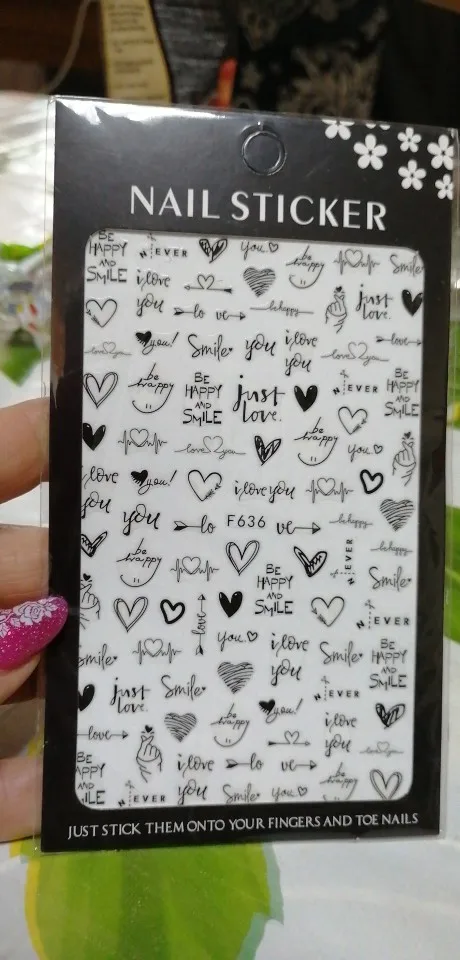 NAIL STICKER
BE HAPPY AND SMILE
NEVER
you
be happy
Smile
i love you
lo ve
be happy
just love.
love you
you!
Smile
you
i love you
love you
love
be happy
BE HAPPY AND SMILE
just love.
NEVER
BE HAPPY AND SMILE
love you
be happy
you
i love you
you!
i love you
you
lo
F636
ve
be happy
be happy
BE HAPPY AND SMILE
NEVER
be happy
Smile
love
you
i love you
Smile
NEVER
BE HAPPY AND SMILE
Smile
just love.
Smile
NEVER
love
be happy
you!
i love you
BE HAPPY AND SMILE
i love you
lo ve
be happy
love you
NEVER
Smile
you
JUST STICK THEM ONTO YOUR FINGERS AND TOE NAILS